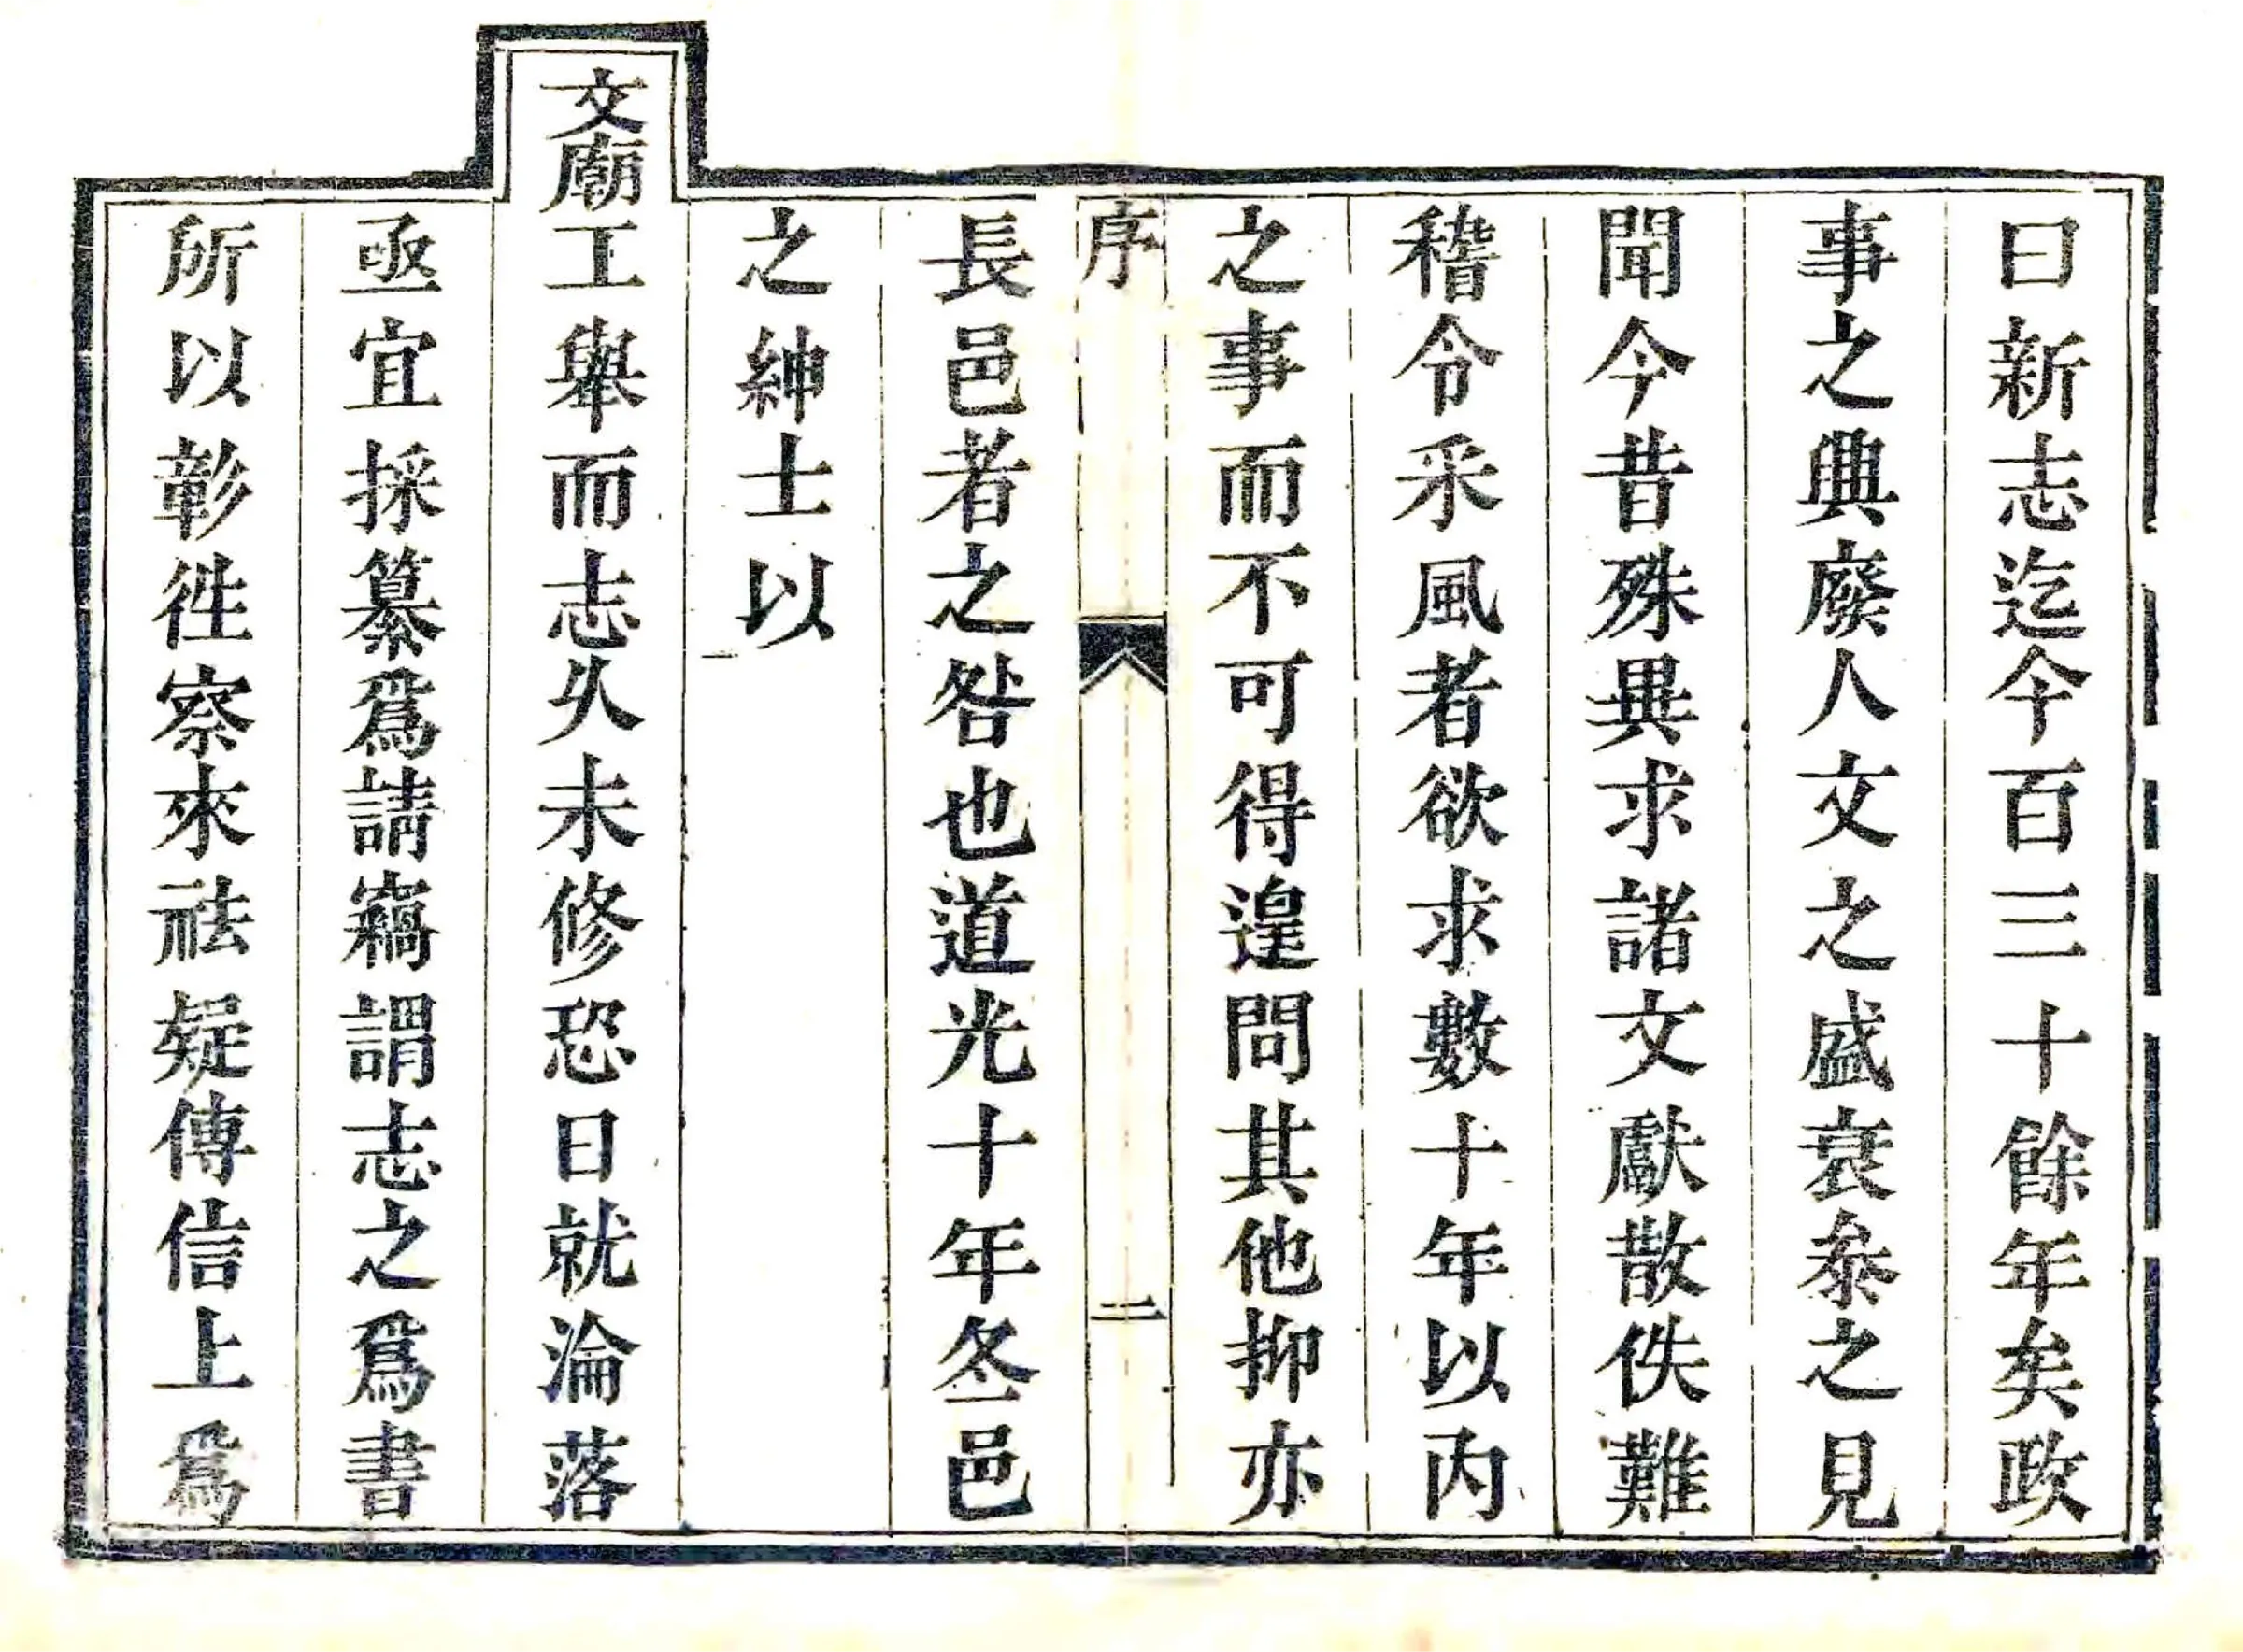 曰新志迄今百三十餘年矣政
事之興廢人文之盛衰叅之見
聞今昔殊異求諸文獻散佚難
稽令采風者欲求數十年以內
之事而不可得遑問其他抑亦
序
二
長邑者之咎也道光十年冬邑
之紳士以
文廟工舉而志久未修恐日就淪落
亟宜採纂爲請竊謂志之爲書
所以彰徃察來祛疑傳信上爲